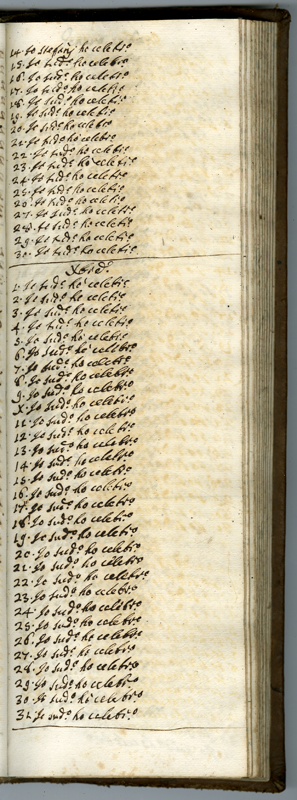 14. Io Stefanj ho celebr.o
15. Io sud.o ho celebr.o
16. Io sud.o ho celebr.o
17. Io sud.o ho celebr.o
18. Io sud.o ho celebr.o
19. Io sud.o ho celebr.o
20. Io sud.o ho celebr.o
21. Io sud.o ho celebr.o
22. Io sud.o ho celebr.o
23. Io sud.o ho celebr.o
24. Io sud.o ho celebr.o
25. Io sud.o ho celebr.o
26. Io sud.o ho celebr.o
27. Io sud.o ho celebr.o
28. Io sud.o ho celebr.o
29. Io sud.o ho celebr.o
30. Io sud.o ho celebr.o
1. Io sud.o ho celebr.o
2. Io sud.o ho celebr.o
3. Io sud.o ho celebr.o
4. Io sud.o ho celebr.o
5. Io sud.o ho celebr.o
6. Io sud.o ho celebr.o
7. Io sud.o ho celebr.o
8. Io sud.o ho celebr.o
9. Io sud.o ho celebr.o
X. Io sud.o ho celebr.o
11. Io sud.o ho celebr.o
12. Io sud.o ho celebr.o
13. Io sud.o ho celebr.o
14. Io sud.o ho celebr.o
15. Io sud.o ho celebr.o
16. Io sud.o ho celebr.o
17. Io sud.o ho celebr.o
18. Io sud.o ho celebr.o
19. Io sud.o ho celebr.o
20. Io sud.o ho celebr.o
21. Io sud.o ho celebr.o
22. Io sud.o ho celebr.o
23. Io sud.o ho celebr.o
24. Io sud.o ho celebr.o
25. Io sud.o ho celebr.o
26. Io sud.o ho celebr.o
27. Io sud.o ho celebr.o
28. Io sud.o ho celebr.o
29. Io sud.o ho celebr.o
30. Io sud.o ho celebr.o
31. Io sud.o ho celebr.o